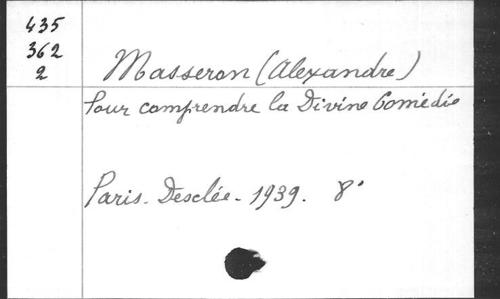 435
362
2
Masseron (Alexandre)
Pour comprendre la Divine Comédie
Paris. Desclée. 1939. 8°